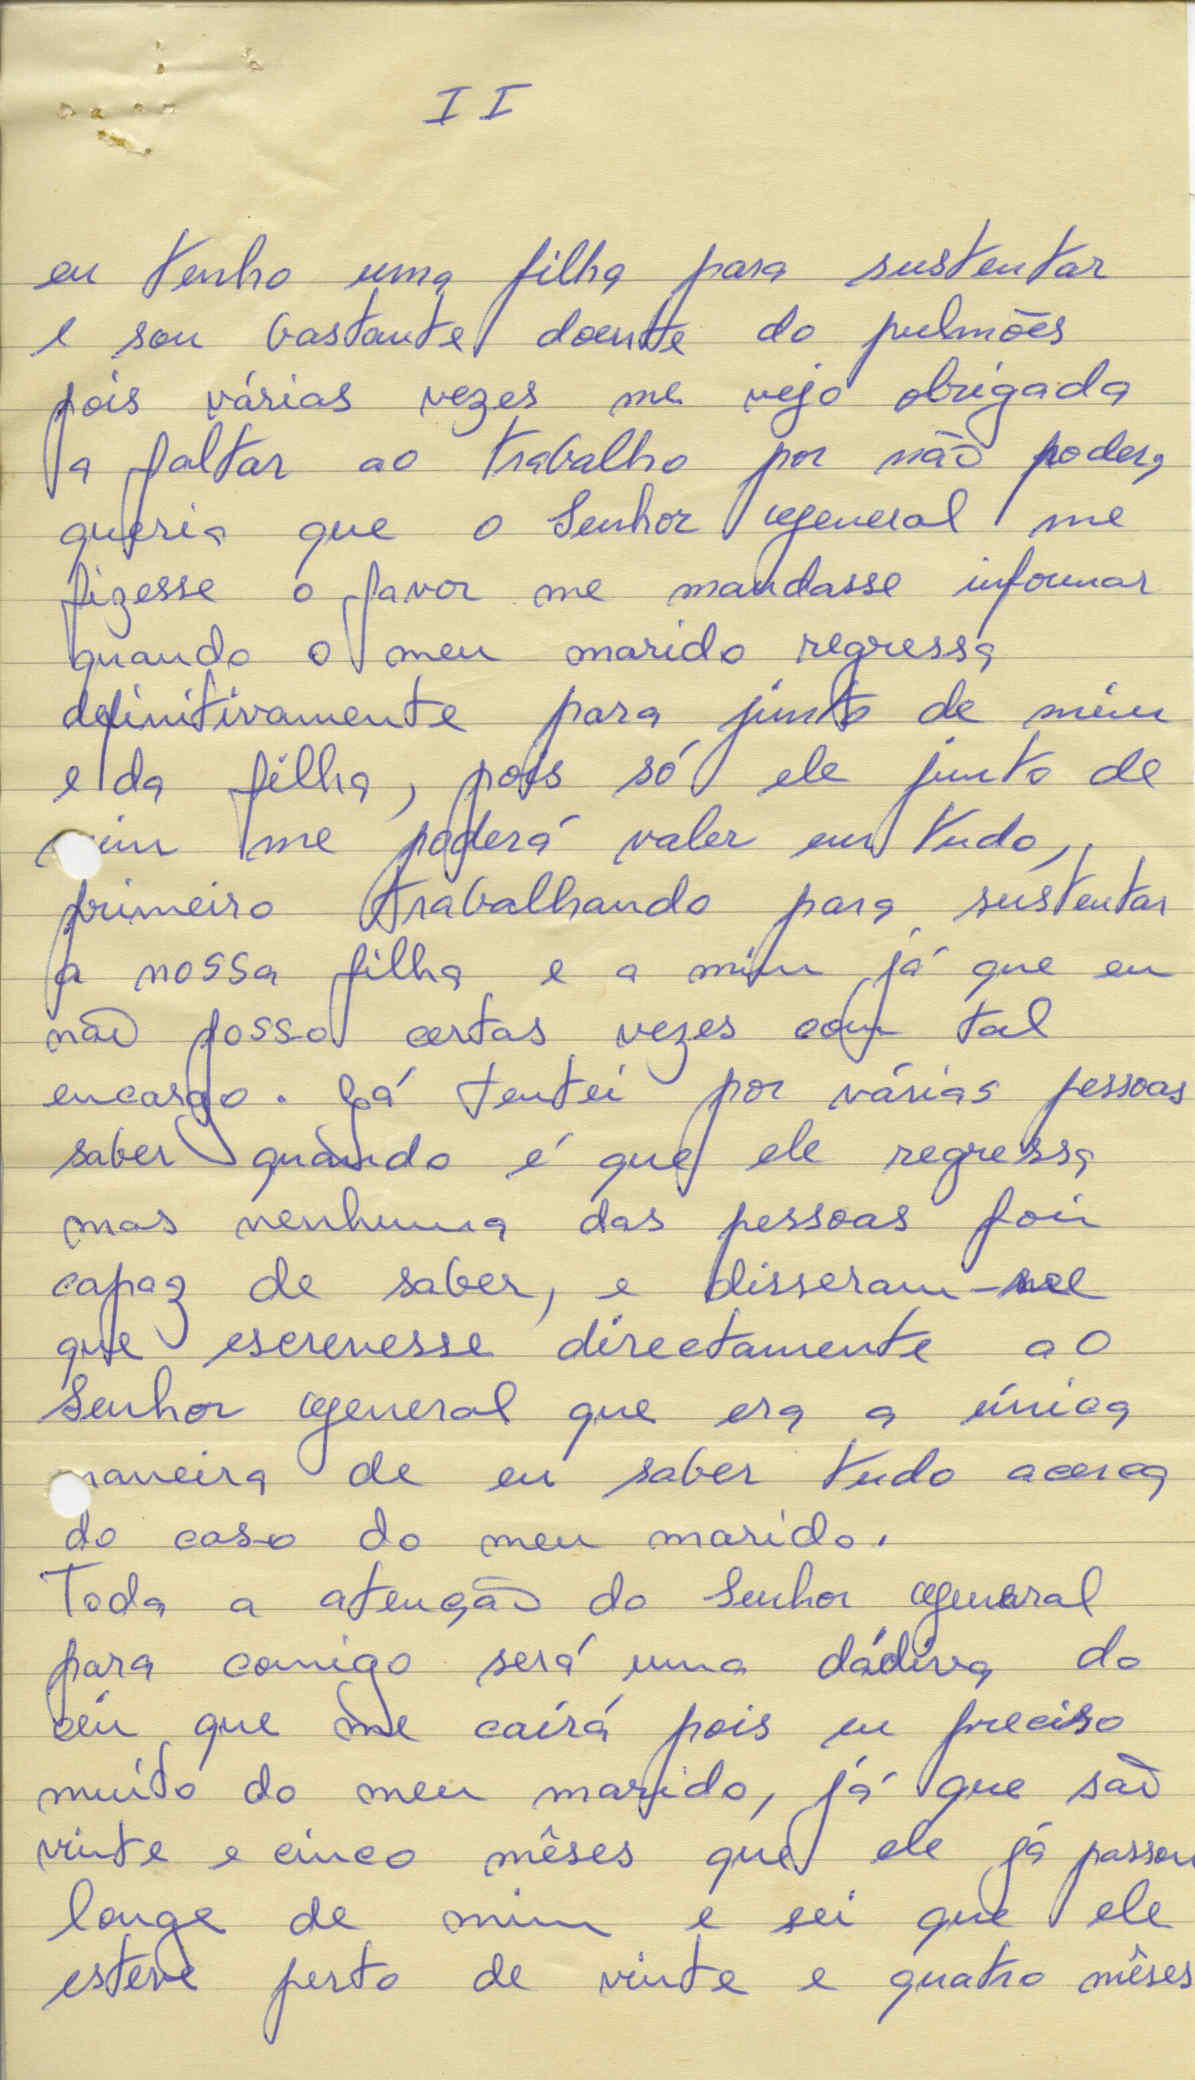 II
eu tenho uma filha para sustentar
e sou bastante doente do pulmões
pois várias vezes me vejo obrigada
a faltar ao trabalho por não poder,
queria que o Senhor General me
fizesse o favor me mandasse informar
quando o meu marido regressa
definitivamente para junto de mim
e da filha, pois só ele junto de
mim me poderá valer em tudo,
primeiro trabalhando para sustentar
a nossa filha e a mim já que eu
não posso certas vezes com tal
encargo. Já tentei por várias pessoas
saber quando é que ele regressa
mas nenhuma das pessoas foi
capaz de saber, e disseram-me
que escrevesse directamente ao
Senhor General que era a única
maneira de eu saber tudo acerca
do caso do meu marido.
Toda a atenção do Senhor General
para comigo será uma dádiva do
céu que me cairá pois eu preciso
muito do meu marido, já que são
vinte e cinco mêses que ele já passou
longe de mim e sei que ele
esteve perto de vinte e quatro mêses